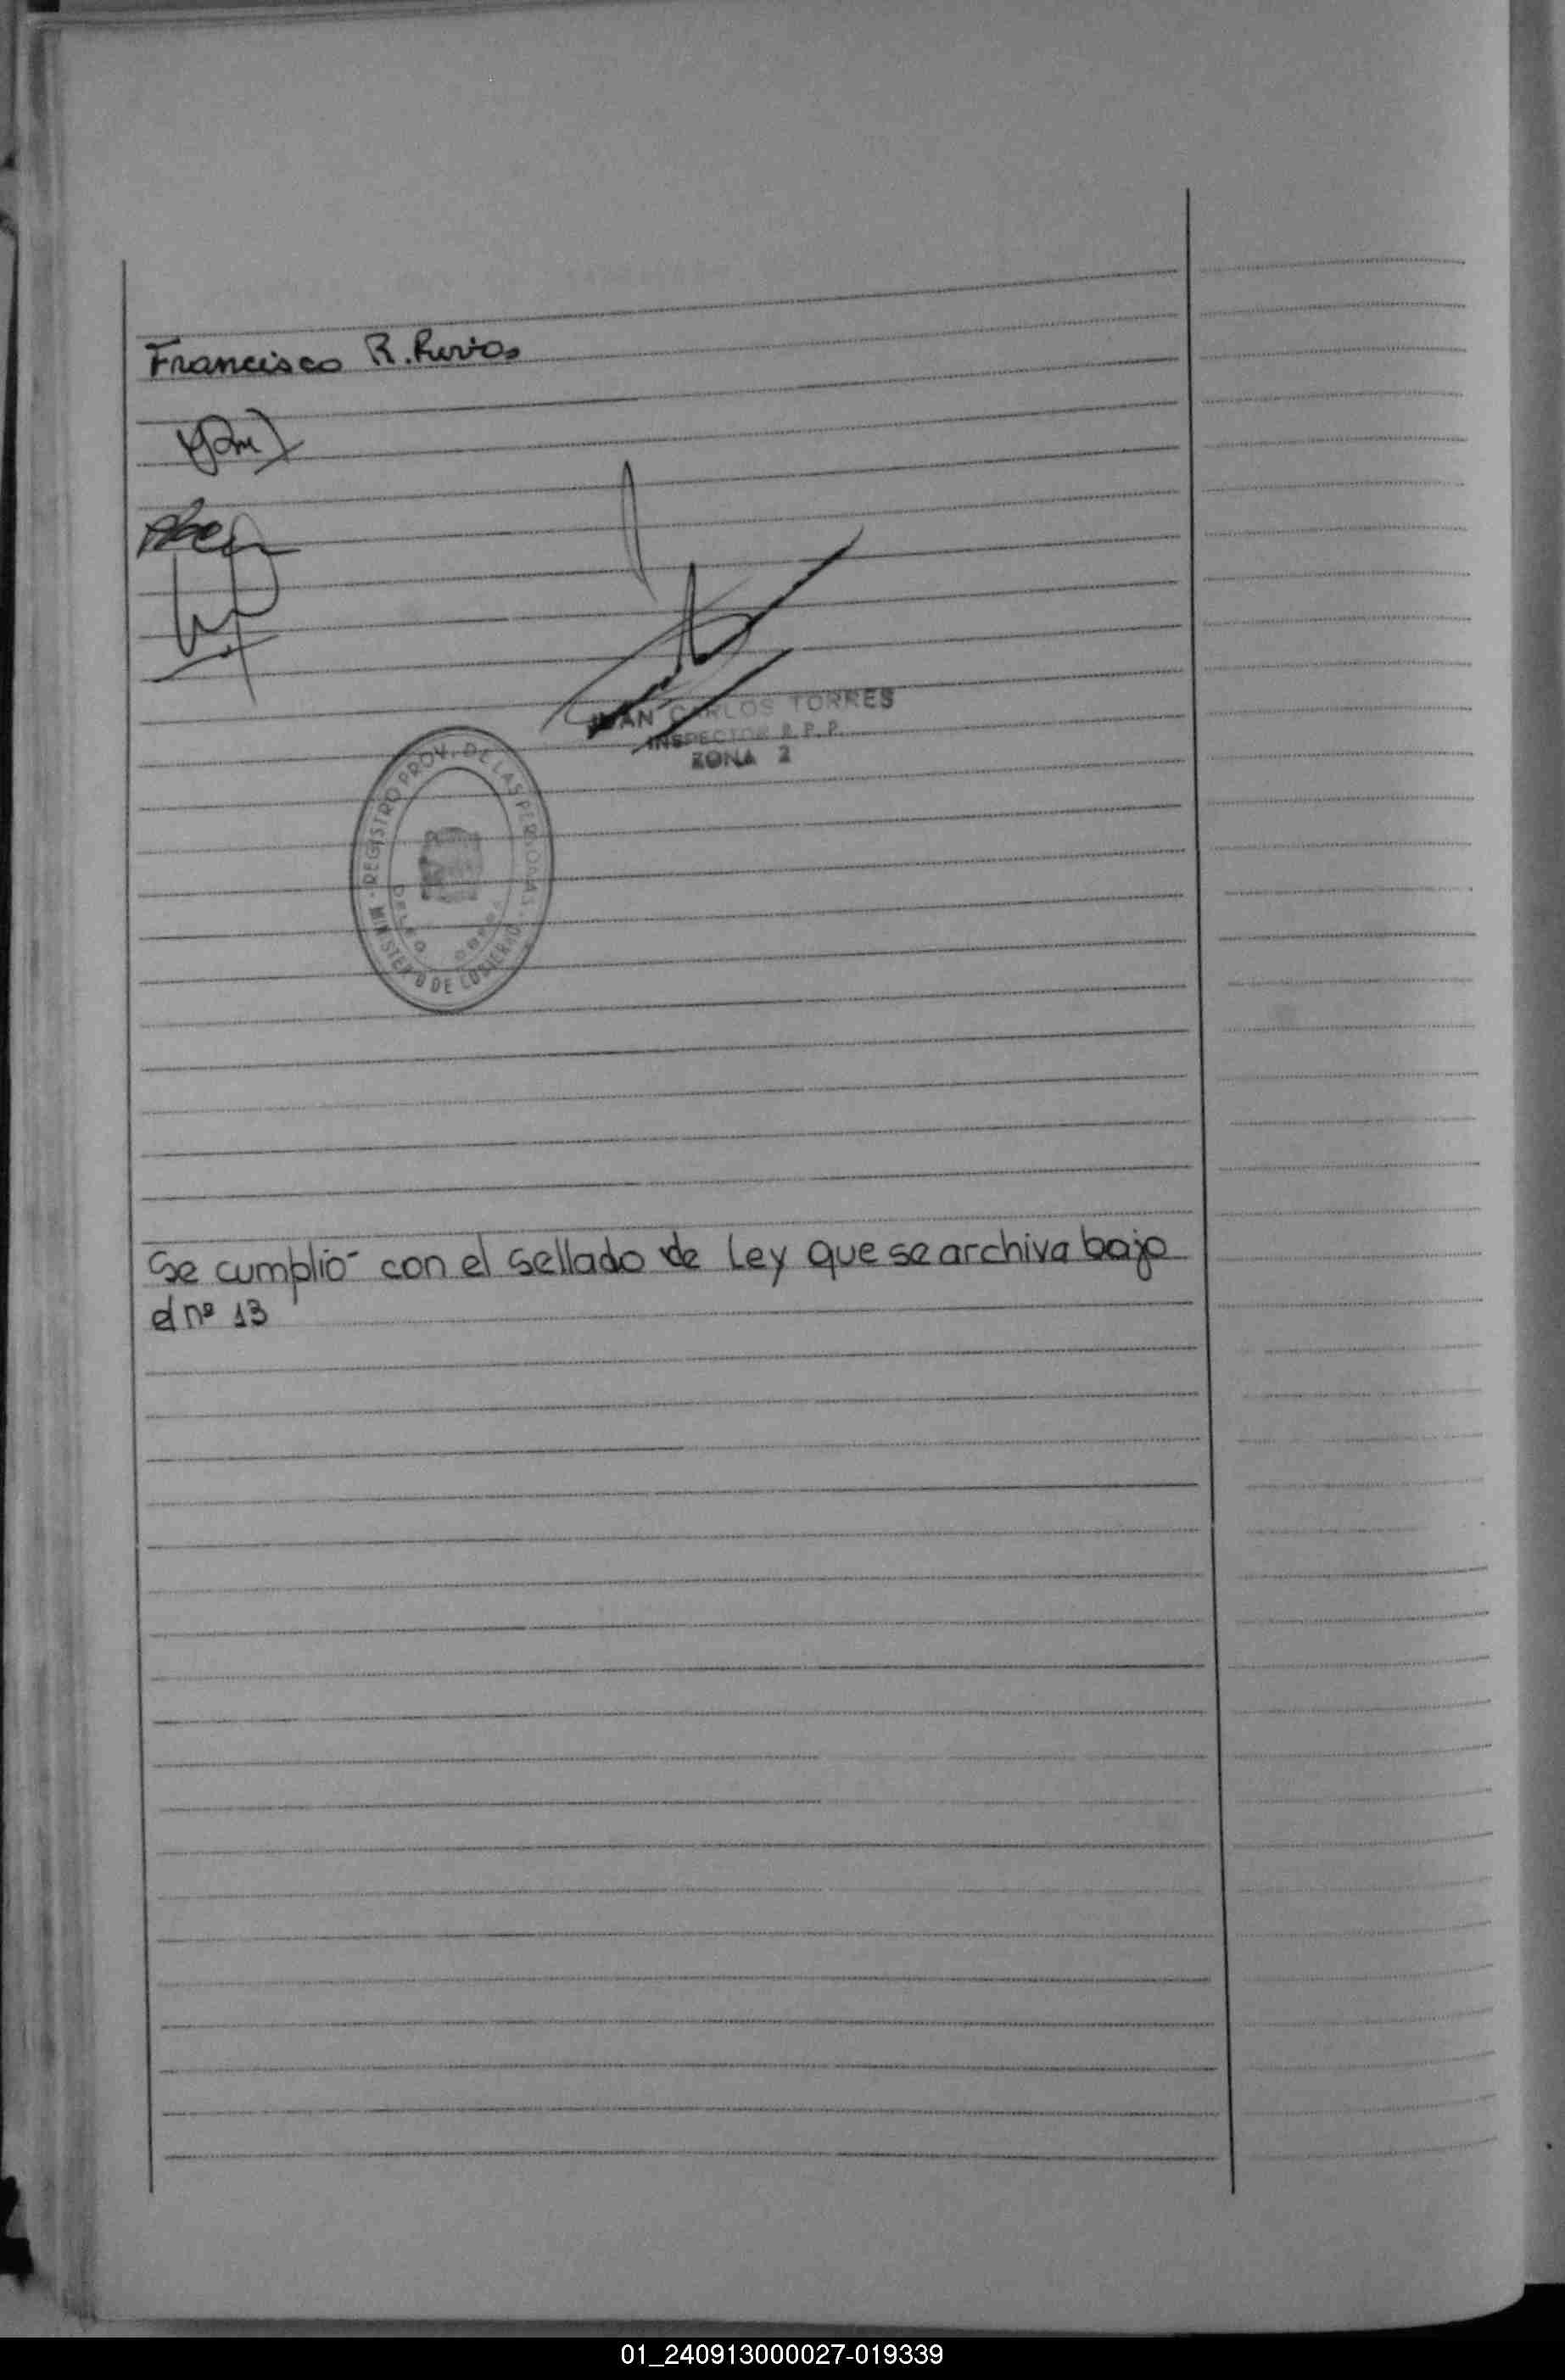 Francisco R.
JUAN CARLOS TORRES
INSPECTOR R.P.P.
ZONA 2
REGISTRO PROV. DE LAS PERSONAS
MINISTERIO DE GOBIERNO
Se cumplió con el sellado de Ley que se archiva bajo
el nº 13
01_240913000027-019339